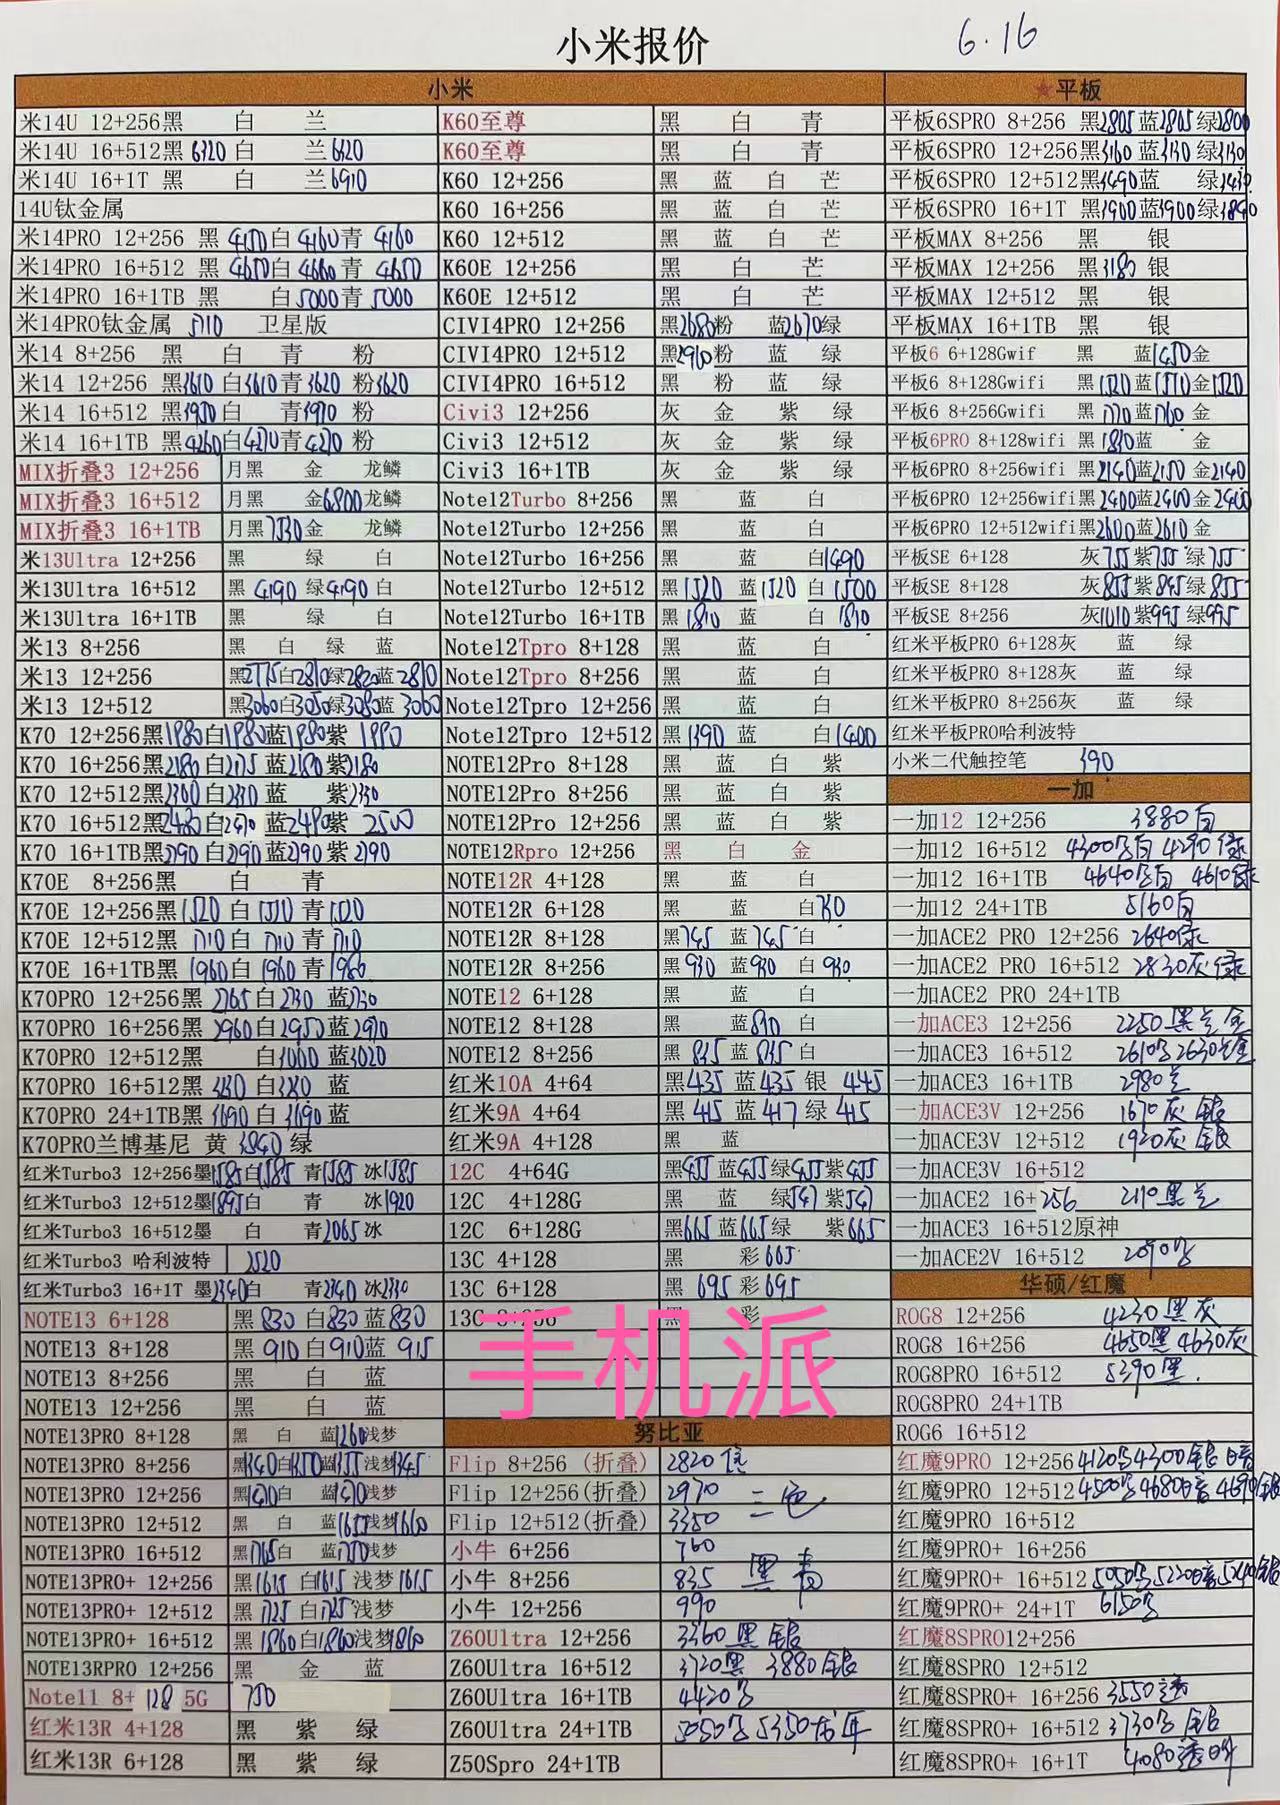 小米报价 6.16
小米
米14U 12+256黑 白 兰
米14U 16+512黑 6320 白 兰6320
米14U 16+1T 黑 白 兰6910
14U钛金属
米14PRO 12+256 黑 4150 白 4160 青 4160
米14PRO 16+512 黑 4650 白 4660 青 4650
米14PRO 16+1TB 黑 白5000青 5000
米14PRO钛金属 5110 卫星版
米14 8+256 黑 白 青 粉
米14 12+256 黑3610 白3610青 3620 粉3620
米14 16+512 黑3950白 青3970 粉
米14 16+1TB 黑4260白4270青4270 粉
MIX折叠3 12+256 月黑 金 龙鳞
MIX折叠3 16+512 月黑 金6800龙鳞
MIX折叠3 16+1TB 月黑 7530金 龙鳞
米13Ultra 12+256 黑 绿 白
米13Ultra 16+512 黑 4190 绿4190 白
米13Ultra 16+1TB 黑 绿 白
米13 8+256 黑 白 绿 蓝
米13 12+256 黑2775白2810绿2820蓝 2810
米13 12+512 黑3060白3050绿3080蓝 3060
K70 12+256黑1980白1980蓝1980紫 1990
K70 16+256黑2180 白2175 蓝2180紫2180
K70 12+512黑2300 白2330 蓝 紫2330
K70 16+512黑 白2470 蓝2490紫 2500
K70 16+1TB黑2790 白2790蓝2790紫 2790
K70E 8+256黑 白 青
K70E 12+256黑1520 白 1510 青 1520
K70E 12+512黑 1710白 1710 青 1710
K70E 16+1TB黑 1960白 1960 青 1980
K70PRO 12+256黑 2765白2730 蓝2730
K70PRO 16+256黑 2960白2950蓝2970
K70PRO 12+512黑 白3000蓝3020
K70PRO 16+512黑 3280 白3280 蓝
K70PRO 24+1TB黑 3690 白 3690 蓝
K70PRO兰博基尼 黄 3840 绿
红米Turbo3 12+256墨1585白1585 青1585 冰1585
红米Turbo3 12+512墨1895白 青 冰1920
红米Turbo3 16+512墨 白 青2065冰
红米Turbo3 哈利波特 2520
红米Turbo3 16+1T 墨2340白 青2340 冰2330
NOTE13 6+128 黑 830 白830 蓝 830
NOTE13 8+128 黑 910 白910蓝 915
NOTE13 8+256 黑 白 蓝
NOTE13 12+256 黑 白 蓝
NOTE13PRO 8+128 黑 白 蓝1260浅梦
NOTE13PRO 8+256 黑1340白1350蓝1355浅梦1345
NOTE13PRO 12+256 黑1470白 蓝1470浅梦
NOTE13PRO 12+512 黑 白 蓝1655浅梦1660
NOTE13PRO 16+512 黑1765白 蓝1750浅梦
NOTE13PRO+ 12+256 黑1615 白1615 浅梦 1615
NOTE13PRO+ 12+512 黑1725 白1725浅梦
NOTE13PRO+ 16+512 黑 1860白1860浅梦1860
NOTE13RPRO 12+256 黑 金 蓝
Note11 8+ 128 5G 750
红米13R 4+128 黑 紫 绿
红米13R 6+128 黑 紫 绿
K60至尊 黑 白 青
K60至尊 黑 白 青
K60 12+256 黑 蓝 白 芒
K60 16+256 黑 蓝 白 芒
K60 12+512 黑 蓝 白 芒
K60E 12+256 黑 白 芒
K60E 12+512 黑 白 芒
CIVI4PRO 12+256 黑2680粉 蓝2670绿
CIVI4PRO 12+512 黑2910粉 蓝 绿
CIVI4PRO 16+512 黑 粉 蓝 绿
Civi3 12+256 灰 金 紫 绿
Civi3 12+512 灰 金 紫 绿
Civi3 16+1TB 灰 金 紫 绿
Note12Turbo 8+256 黑 蓝 白
Note12Turbo 12+256 黑 蓝 白
Note12Turbo 16+256 黑 蓝 白1490
Note12Turbo 12+512 黑1520 蓝1520 白 1500
Note12Turbo 16+1TB 黑 1810 蓝 白 1810
Note12Tpro 8+128 黑 蓝 白
Note12Tpro 8+256 黑 蓝 白
Note12Tpro 12+256 黑 蓝 白
Note12Tpro 12+512 黑 1390 蓝 白1400
NOTE12Pro 8+128 黑 蓝 白 紫
NOTE12Pro 8+256 黑 蓝 白 紫
NOTE12Pro 12+256 黑 蓝 白 紫
NOTE12Rpro 12+256 黑 白 金
NOTE12R 4+128 黑 蓝 白
NOTE12R 6+128 黑 蓝 白730
NOTE12R 8+128 黑745 蓝745 白
NOTE12R 8+256 黑 930 蓝930 白 930
NOTE12 6+128 黑 蓝 白
NOTE12 8+128 黑 蓝810 白
NOTE12 8+256 黑 835 蓝835 白
红米10A 4+64 黑435 蓝435 银 445
红米9A 4+64 黑 415 蓝 417 绿 415
红米9A 4+128 黑 蓝
12C 4+64G 黑455 蓝455绿455紫455
12C 4+128G 黑 蓝 绿547紫547
12C 6+128G 黑665 蓝665绿 紫665
13C 4+128 黑 彩665
13C 6+128 黑 695彩695
13C 8+256 黑 彩
手机派
努比亚
Flip 8+256 (折叠) 2820
Flip 12+256(折叠) 2970 三色
Flip 12+512(折叠) 3350
小牛 6+256 760
小牛 8+256 835 黑 青
小牛 12+256 990
Z60Ultra 12+256 3360 黑 银
Z60Ultra 16+512 3720黑 3880银
Z60Ultra 16+1TB 4420
Z60Ultra 24+1TB 5050 5350
Z50Spro 24+1TB
★平板
平板6SPRO 8+256 黑2805蓝2805绿2800
平板6SPRO 12+256黑3160 蓝3130 绿3130
平板6SPRO 12+512黑3490蓝 绿3430
平板6SPRO 16+1T 黑3900蓝3900绿3840
平板MAX 8+256 黑 银
平板MAX 12+256 黑3180 银
平板MAX 12+512 黑 银
平板MAX 16+1TB 黑 银
平板6 6+128Gwif 黑 蓝1450金
平板6 8+128Gwifi 黑1520蓝1510金1520
平板6 8+256Gwifi 黑 1770蓝1760 金
平板6PRO 8+128wifi 黑 1830蓝 金
平板6PRO 8+256wifi 黑2140蓝2150 金2140
平板6PRO 12+256wifi黑2400蓝2400 金2400
平板6PRO 12+512wifi黑2600蓝2610 金
平板SE 6+128 灰755 紫755 绿755
平板SE 8+128 灰855紫845绿855
平板SE 8+256 灰1010紫995绿995
红米平板PRO 6+128灰 蓝 绿
红米平板PRO 8+128灰 蓝 绿
红米平板PRO 8+256灰 蓝 绿
红米平板PRO哈利波特
小米二代触控笔 390
一加
一加12 12+256 3880白
一加12 16+512 4300 白 4290 绿
一加12 16+1TB 4640 白 4610绿
一加12 24+1TB 5160白
一加ACE2 PRO 12+256 2640绿
一加ACE2 PRO 16+512 2830灰 绿
一加ACE2 PRO 24+1TB
一加ACE3 12+256 2250黑兰金
一加ACE3 16+512 2610 2630 金
一加ACE3 16+1TB 2980兰
一加ACE3V 12+256 1670灰 银
一加ACE3V 12+512 1920灰 银
一加ACE3V 16+512
一加ACE2 16+256 2110黑兰
一加ACE3 16+512原神
一加ACE2V 16+512 2090
华硕/红魔
ROG8 12+256 4230黑灰
ROG8 16+256 4650黑 4630灰
ROG8PRO 16+512 5390黑.
ROG8PRO 24+1TB
ROG6 16+512
红魔9PRO 12+256 4120 4300银 暗
红魔9PRO 12+512 4500 4680暗 4690银
红魔9PRO 16+512
红魔9PRO+ 16+256
红魔9PRO+ 16+512 5050 5220暗5240银
红魔9PRO+ 24+1T 6150
红魔8SPRO12+256
红魔8SPRO 12+512
红魔8SPRO+ 16+256 3550透
红魔8SPRO+ 16+512 3730 银
红魔8SPRO+ 16+1T 4080透